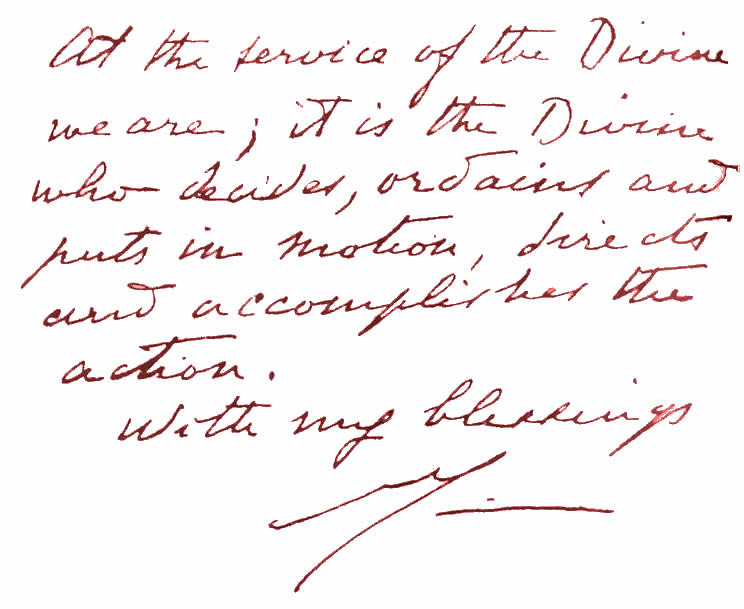 At the service of the Divine
we are; it is the Divine
who decides, ordains and
puts in motion, directs
and accomplishes the
action.
With my blessings